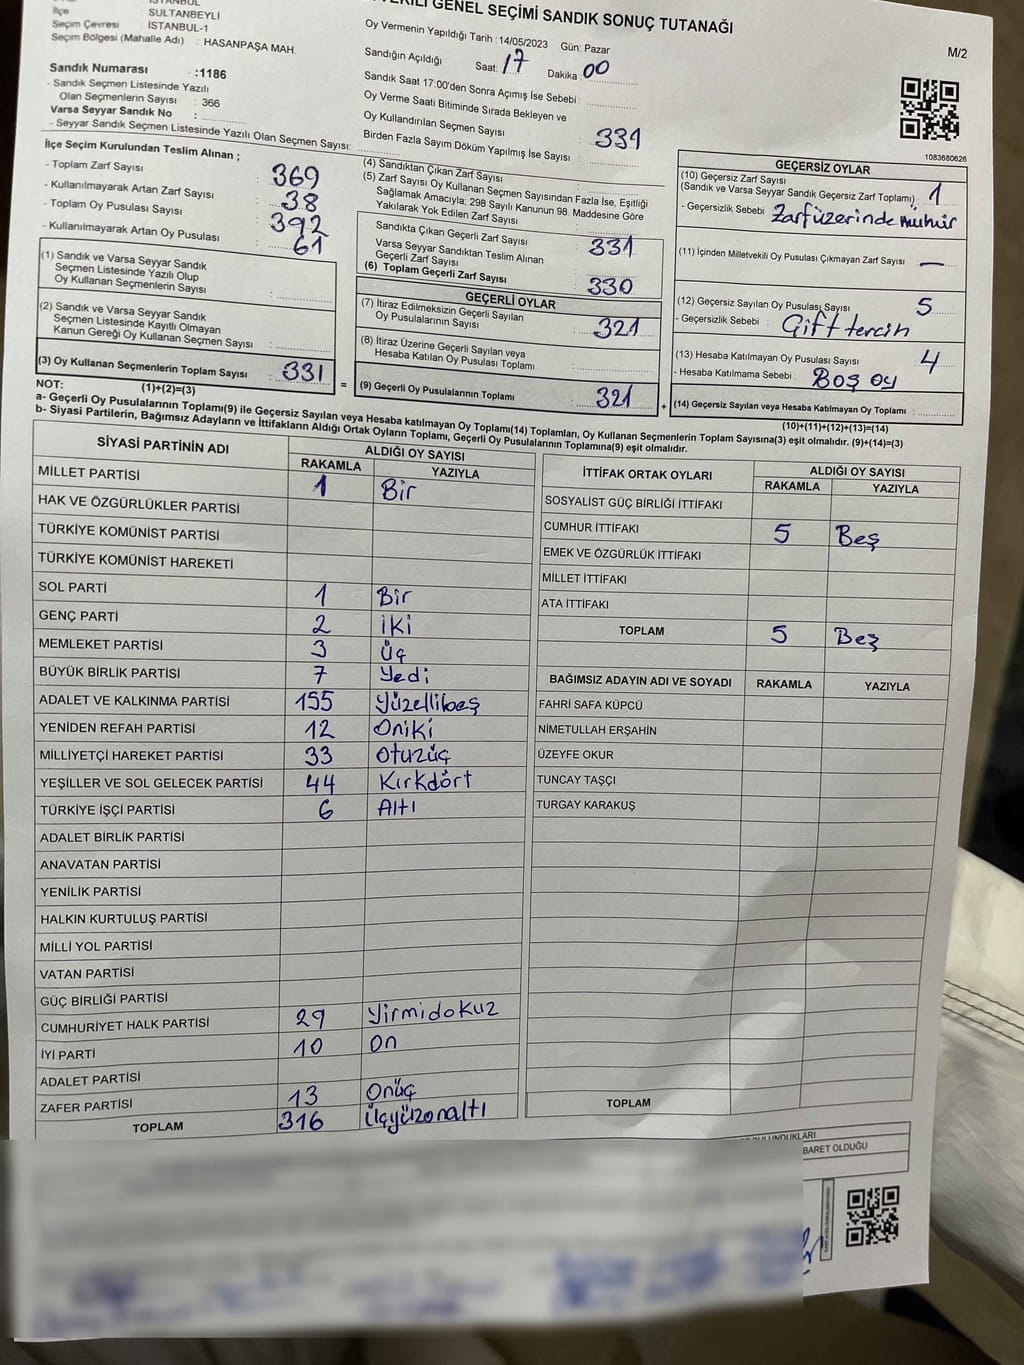 GENEL SEÇİMİ SANDIK SONUÇ TUTANAĞI
M/2
İSTANBUL
İlçe SULTANBEYLİ
Seçim Çevresi İSTANBUL-1
Seçim Bölgesi (Mahalle Adı) : HASANPAŞA MAH.
Sandık Numarası :1186
- Sandık Seçmen Listesinde Yazılı
Olan Seçmenlerin Sayısı : 366
Varsa Seyyar Sandık No :
- Seyyar Sandık Seçmen Listesinde Yazılı Olan Seçmen Sayısı:
İlçe Seçim Kurulundan Teslim Alınan ;
- Toplam Zarf Sayısı : 369
- Kullanılmayarak Artan Zarf Sayısı : 38
- Toplam Oy Pusulası Sayısı : 392
- Kullanılmayarak Artan Oy Pusulası : 61
(1) Sandık ve Varsa Seyyar Sandık
Seçmen Listesinde Yazılı Olup
Oy Kullanan Seçmenlerin Sayısı :
(2) Sandık ve Varsa Seyyar Sandık
Seçmen Listesinde Kayıtlı Olmayan
Kanun Gereği Oy Kullanan Seçmen Sayısı :
(3) Oy Kullanan Seçmenlerin Toplam Sayısı : 331
(1)+(2)=(3)
Oy Vermenin Yapıldığı Tarih : 14/05/2023 Gün: Pazar
Sandığın Açıldığı Saat: 17 Dakika : 00
Sandık Saat 17:00'den Sonra Açılmış İse Sebebi :
Oy Verme Saati Bitiminde Sırada Bekleyen ve
Oy Kullandırılan Seçmen Sayısı : 331
Birden Fazla Sayım Döküm Yapılmış İse Sayısı :
(4) Sandıktan Çıkan Zarf Sayısı :
(5) Zarf Sayısı Oy Kullanan Seçmen Sayısından Fazla İse, Eşitliği
Sağlamak Amacıyla; 298 Sayılı Kanunun 98. Maddesine Göre
Yakılarak Yok Edilen Zarf Sayısı :
Sandıkta Çıkan Geçerli Zarf Sayısı : 331
Varsa Seyyar Sandıktan Teslim Alınan
Geçerli Zarf Sayısı :
(6) Toplam Geçerli Zarf Sayısı : 330
GEÇERLİ OYLAR
(7) İtiraz Edilmeksizin Geçerli Sayılan
Oy Pusulalarının Sayısı : 321
(8) İtiraz Üzerine Geçerli Sayılan veya
Hesaba Katılan Oy Pusulası Toplamı :
= (9) Geçerli Oy Pusulalarının Toplamı : 321 +
1083680626
GEÇERSİZ OYLAR
(10) Geçersiz Zarf Sayısı
(Sandık ve Varsa Seyyar Sandık Geçersiz Zarf Toplamı) : 1
- Geçersizlik Sebebi : Zarf üzerinde mühür
(11) İçinden Milletvekili Oy Pusulası Çıkmayan Zarf Sayısı : —
(12) Geçersiz Sayılan Oy Pusulası Sayısı : 5
- Geçersizlik Sebebi : Çift tercih
(13) Hesaba Katılmayan Oy Pusulası Sayısı : 4
- Hesaba Katılmama Sebebi : Boş oy
(14) Geçersiz Sayılan veya Hesaba Katılmayan Oy Toplamı :
(10)+(11)+(12)+(13)=(14)
NOT:
a- Geçerli Oy Pusulalarının Toplamı(9) ile Geçersiz Sayılan veya Hesaba katılmayan Oy Toplamı(14) Toplamları, Oy Kullanan Seçmenlerin Toplam Sayısına(3) eşit olmalıdır. (9)+(14)=(3)
b- Siyasi Partilerin, Bağımsız Adayların ve İttifakların Aldığı Ortak Oyların Toplamı, Geçerli Oy Pusulalarının Toplamına(9) eşit olmalıdır.
SİYASİ PARTİNİN ADI ALDIĞI OY SAYISI
RAKAMLA YAZIYLA
MİLLET PARTİSİ 1 Bir
HAK VE ÖZGÜRLÜKLER PARTİSİ
TÜRKİYE KOMÜNİST PARTİSİ
TÜRKİYE KOMÜNİST HAREKETİ
SOL PARTİ 1 Bir
GENÇ PARTİ 2 iki
MEMLEKET PARTİSİ 3 Üç
BÜYÜK BİRLİK PARTİSİ 7 Yedi
ADALET VE KALKINMA PARTİSİ 155 Yüzellibeş
YENİDEN REFAH PARTİSİ 12 Oniki
MİLLİYETÇİ HAREKET PARTİSİ 33 Otuzüç
YEŞİLLER VE SOL GELECEK PARTİSİ 44 Kırkdört
TÜRKİYE İŞÇİ PARTİSİ 6 Altı
ADALET BİRLİK PARTİSİ
ANAVATAN PARTİSİ
YENİLİK PARTİSİ
HALKIN KURTULUŞ PARTİSİ
MİLLİ YOL PARTİSİ
VATAN PARTİSİ
GÜÇ BİRLİĞİ PARTİSİ
CUMHURİYET HALK PARTİSİ 29 Yirmidokuz
İYİ PARTİ 10 On
ADALET PARTİSİ
ZAFER PARTİSİ 13 Onüç
TOPLAM 316 Üçyüzonaltı
İTTİFAK ORTAK OYLARI ALDIĞI OY SAYISI
RAKAMLA YAZIYLA
SOSYALİST GÜÇ BİRLİĞİ İTTİFAKI
CUMHUR İTTİFAKI 5 Beş
EMEK VE ÖZGÜRLÜK İTTİFAKI
MİLLET İTTİFAKI
ATA İTTİFAKI
TOPLAM 5 Beş
BAĞIMSIZ ADAYIN ADI VE SOYADI RAKAMLA YAZIYLA
FAHRİ SAFA KÜPCÜ
NİMETULLAH ERŞAHİN
ÜZEYFE OKUR
TUNCAY TAŞÇI
TURGAY KARAKUŞ
TOPLAM
BULUNDUKLARI
BARET OLDUĞU